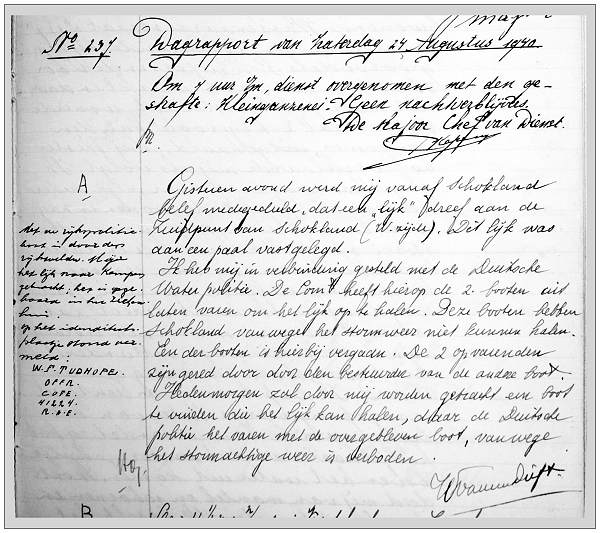 No 237. Dagrapport van Zaterdag 24 Augustus 1940.
Om 7 uur Vm, dienst overgenomen met den ge-
stafte: Kleinganzenei. Geen nachtverblijvers.
De Majoor Chef van Dienst.
A
Gisteren avond werd mij vanaf Schokland
belef medegedeeld, dat een "lijk" dreef aan de
Zuidpunt van Schokland (W. zijde). Dit lijk was
aan een paal vastgelegd.
Ik heb mij in verbinding gesteld met de Duitsche
Water politie. De Comt heeft hierop de 2 booten uit
laten varen om het lijk op te halen. Deze booten hebben
Schokland vanwege het stormweer niet kunnen halen.
Een der booten is hierbij vergaan. De 2 opvarenden
zijn gered door door den bestuurder van de andere boot.
Hedenmorgen zal door mij worden getracht een boot
te vinden die het lijk kan halen, daar de Duitsche
politie het varen met de overgebleven boot, vanwege
het stormachtige weer is verboden.
Met de rijkspolitie
boot is door den
het lijk naar Kampen
gebracht, hier is
op het identiteits
plaatje stond ver-
meld:
W. F. TUDHOPE.
OFFR.
C OF E.
41224
R.A.F.
B